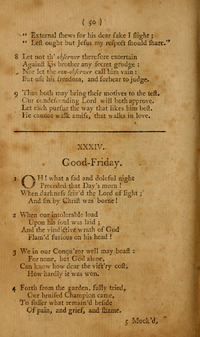 ( 50 )
" External shews for his dear sake I slight ;
" Lest ought but Jesus my respect should share."
8 Let not th' observer therefore entertain
Against his brother any secret grudge :
Nor let the non-observer call him vain :
But use his freedom, and forbear to judge.
9 Thus both may bring their motives to the test.
Our condescending Lord will both approve.
Let each pursue the way that likes him best.
He cannot walk amiss, that walks in love.
XXXIV.
Good-Friday.
1 OH! what a sad and doleful night
Preceeded that Day's morn !
When darkness seiz'd the Lord of light ;
And sin by Christ was borne !
2 When our intolerable load
Upon his soul was laid ;
And the vindictive wrath of God
Flam'd furious on his head !
3 We in our Conqu'ror well may boast :
For none, but God alone,
Can know how dear the vict'ry cost,
How hardly it was won.
4 Forth from the garden, fully tried,
Our bruised Champion came,
To suffer what remain'd beside
Of pain, and grief, and shame.
5 Mock'd,